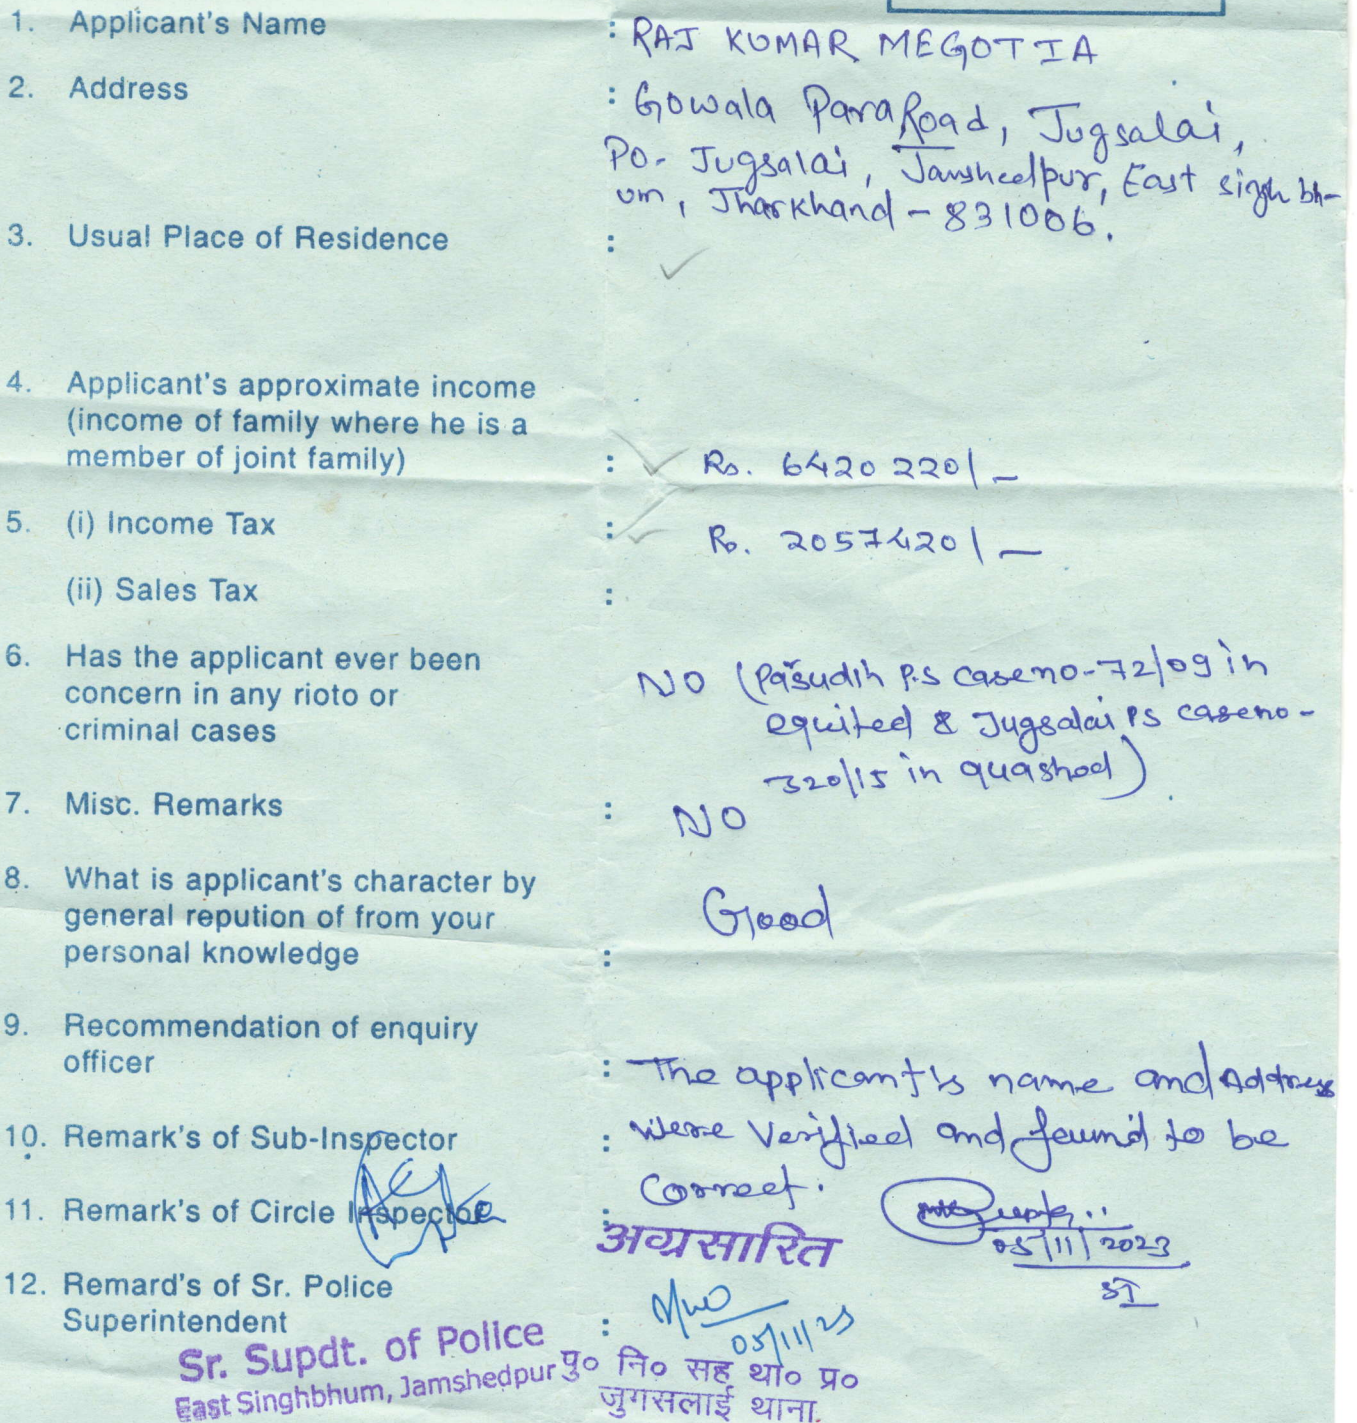 1. Applicant's Name : RAJ KUMAR MEGOTIA
2. Address : Gowala Para Road, Jugsalai,
Po- Jugsalai, Jamshedpur, East singh bh-
um, Jharkhand - 831006.
3. Usual Place of Residence :
4. Applicant's approximate income
(income of family where he is a
member of joint family) : Rs. 6420220/-
5. (i) Income Tax : Rs. 2057420/-
(ii) Sales Tax :
6. Has the applicant ever been
concern in any rioto or
criminal cases
NO (Pasudih P.S case no-72/09 in
equited & Jugsalai PS case no-
320/15 in quashod)
7. Misc. Remarks : NO
8. What is applicant's character by
general repution of from your
personal knowledge :
Good
9. Recommendation of enquiry
officer : The applicant's name and Address
10. Remark's of Sub-Inspector : were verified and found to be
correct.
11. Remark's of Circle Inspector :
अग्रसारित
05/11/2023
SI
12. Remard's of Sr. Police
Superintendent :
05/11/23
Sr. Supdt. of Police
East Singhbhum, Jamshedpur
पु० नि० सह था० प्र०
जुगसलाई थाना.